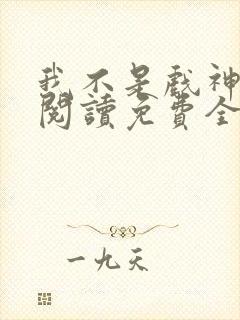 我不是戲神
閱讀免費全
一九天